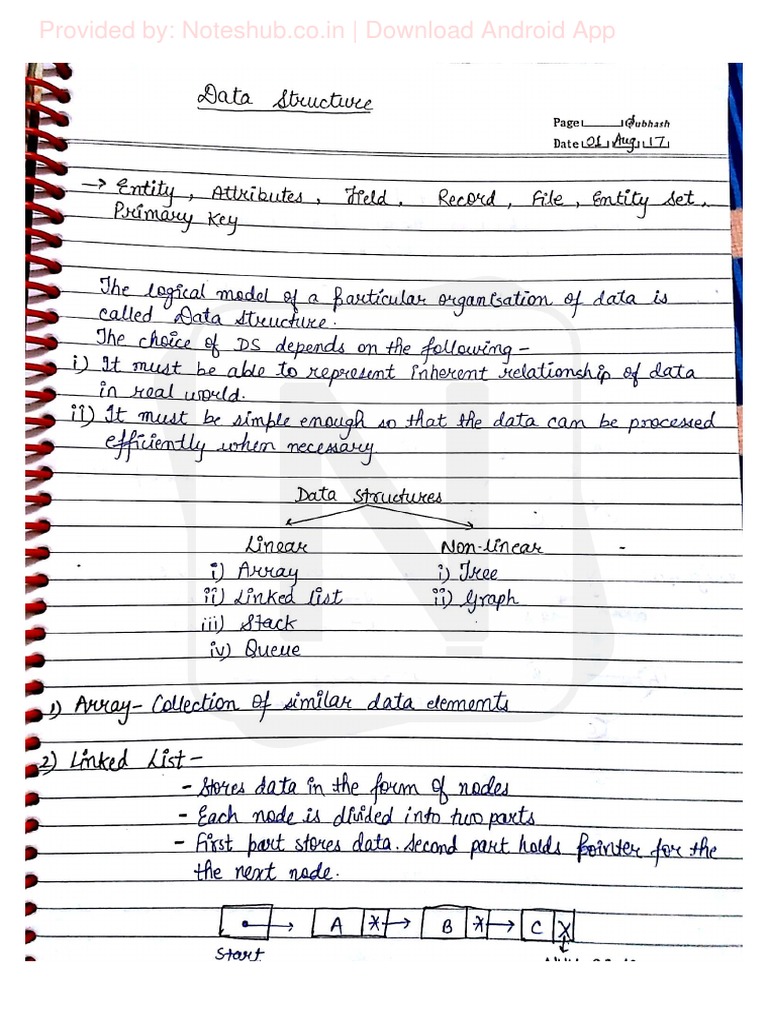 Provided by: Noteshub.co.in | Download Android App
Data Structure
Page Subhash
Date 01 Aug 17
→ Entity, Attributes, Field, Record, File, Entity set,
Primary key
The logical model of a particular organisation of data is
called Data Structure.
The choice of DS depends on the following -
i) It must be able to represent inherent relationship of data
in real world.
ii) It must be simple enough so that the data can be processed
efficiently when necessary.
Data Structures
Linear Non-linear
i) Array i) Tree
ii) Linked list ii) Graph
iii) Stack
iv) Queue
1) Array - Collection of similar data elements
2) Linked List -
- Stores data in the form of nodes
- Each node is divided into two parts
- First part stores data. Second part holds pointer for the
the next node.
A B C X
Start